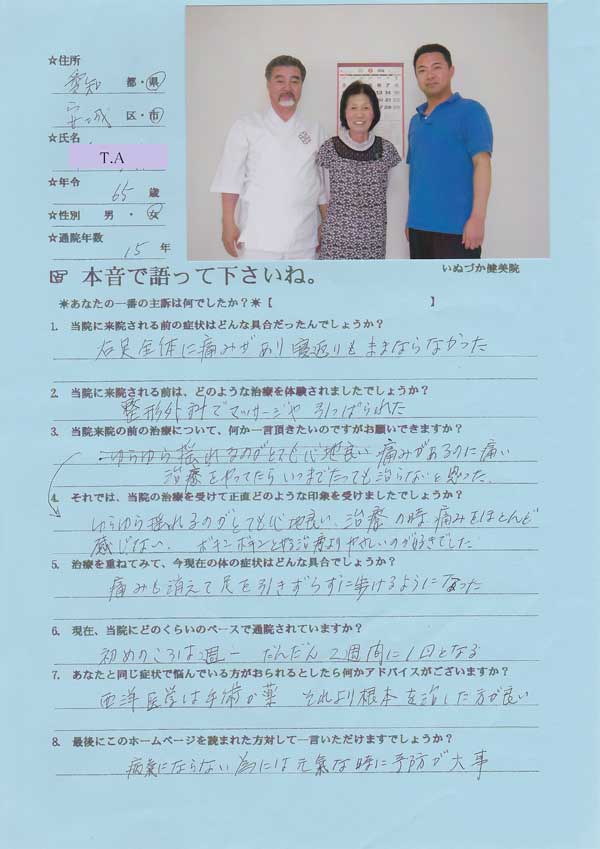 ☆住所
愛知 都・県
安城 区・市
☆氏名
T.A
☆年令
65 歳
☆性別 男・女
☆通院年数
15 年
いぬづか健美院
☞ 本音で語って下さいね。
＊あなたの一番の主訴は何でしたか？＊【 】
1. 当院に来院される前の症状はどんな具合だったんでしょうか？
右足全体に痛みがあり寝返りもままならなかった
2. 当院に来院される前は、どのような治療を体験されましたでしょうか？
整形外科でマッサージや引っぱられた
3. 当院来院の前の治療について、何か一言頂きたいのですがお願いできますか？
ゆらゆら揺れるのがとても心地良い 痛みがあるのに痛い
治療をやってたらいつまでたっても治らないと思った。
4. それでは、当院の治療を受けて正直どのような印象を受けましたでしょうか？
ゆらゆら揺れるのがとても心地良い、治療の時痛みをほとんど
感じない、ボキンボキンとやる治療よりやさしいのが好きでした
5. 治療を重ねてみて、今現在の体の症状はどんな具合でしょうか？
痛みも消えて足を引きずらずに歩けるようになった
6. 現在、当院にどのくらいのペースで通院されていますか？
初めのころは週一 だんだん2週間に1回となる
7. あなたと同じ症状で悩んでいる方がおられるとしたら何かアドバイスがございますか？
西洋医学は手術か薬 それより根本を治した方が良い
8. 最後にこのホームページを読まれた方対して一言いただけますでしょうか？
病氣にならない為には元氣な時に予防が大事